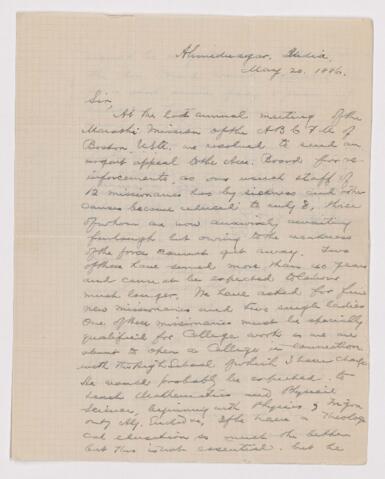 Ahmednagar, India,
May 20, 1886.
Sir,
At the last annual meeting of the
Marathi Mission of the A B C F M of
Boston, U.S.A. we resolved to send an
urgent appeal to the Am. Board for re-
inforcements, as our usual staff of
12 missionaries has by sickness and other
causes become reduced to only 8, three
of whom are now anxiously awaiting
furlough but owing to the weakness
of the force cannot get away. Two
of these have served more than 40 years
and cannot be expected to labour
much longer. We have asked for five
new missionaries and two single ladies
One of these missionaries must be specially
qualified for College work as we are
about to open a College in connection
with the High School of which I have charge
He would probably be expected to
teach Mathematics and Physical
Science, beginning with Physics &
Alg. Euclid. If he have a Theologi-
cal education so much the better
but this is not essential. but he